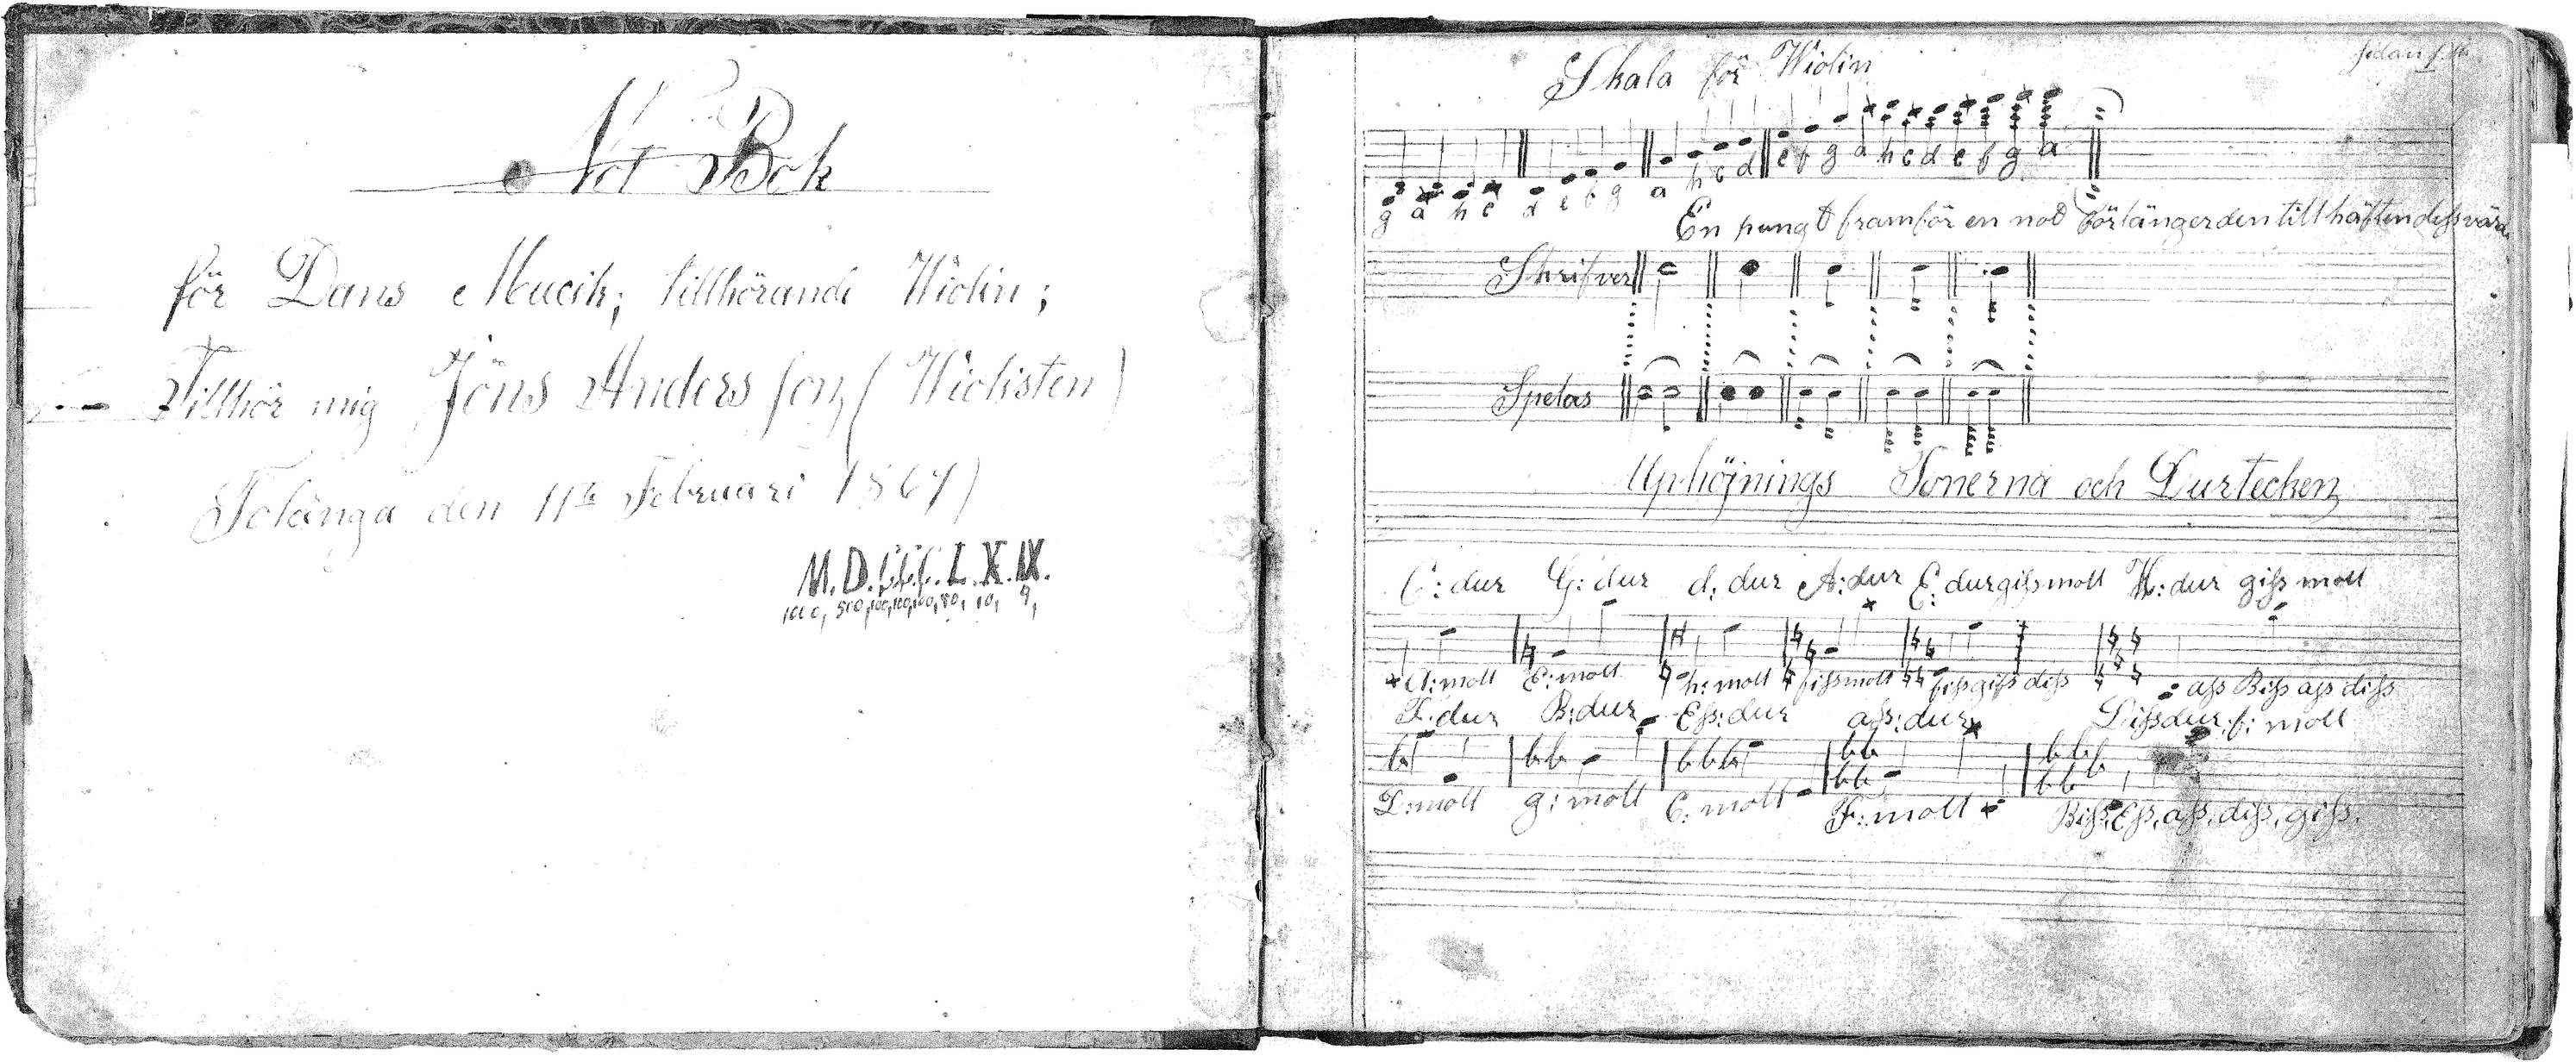 Not Bok
för Dans Mucik; tillhörande Wiolin;
Tillhör mig Jöns Andersson (Wiolisten)
Tolånga den 11te Februari 1869)
M.D.C.C.C.L.X.IX.
1000, 500, 100, 100, 100, 50, 10, 9,
Skala för Wiolin
g a h c d e f g a h c d e f g a h c d e f g a
En pungt framför en not förlänger den till hälften dess värde
Skrifves
Spelas
Uphöjnings Tonerna och Durtecken
C: dur G: dur d: dur A: dur E: dur giss moll H: dur giss moll
A: moll E: moll h: moll fiss moll fiss giss diss ass Biss ass diss
F: dur B: dur Ess: dur ass: dur Diss dur. f: moll
D: moll g: moll C: moll F: moll Biss, Ess, ass, diss, giss.